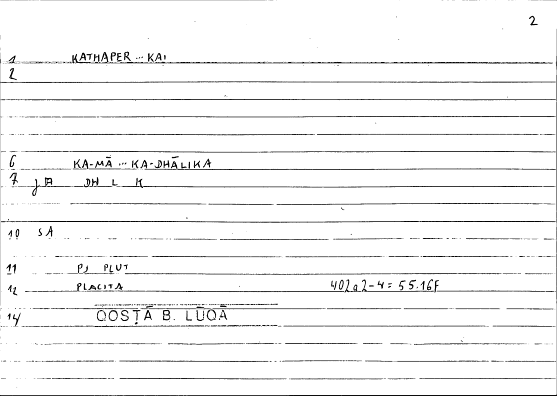 2
1 KATHAPER ... KAI
2
6 KA-MĀ ... KA-DHĀLIKA
7 DH L K
10 SA
11 PS PLUT
12 PLACITA 402a2-4 = 55.16F
14 QOSṬĀ B. LŪQĀ